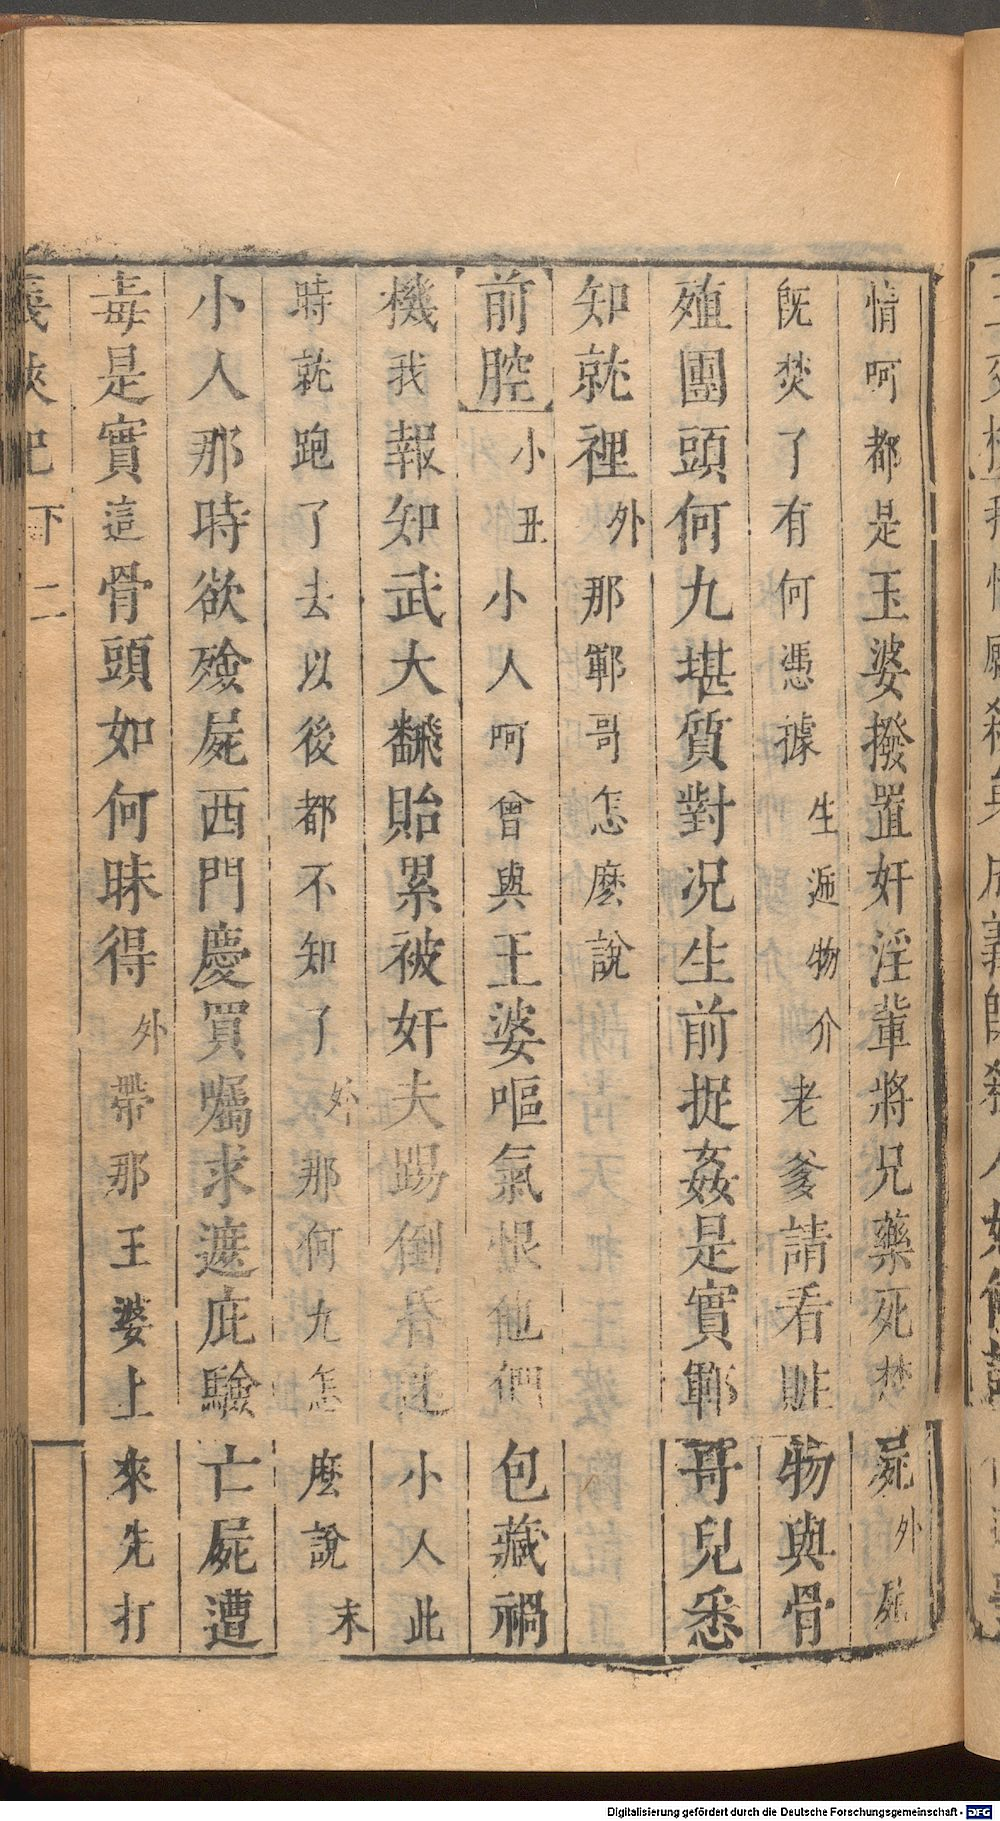 情呵都是王婆撥置奸淫輩將兄藥死焚屍外屍
既焚了有何憑據生遞物介老爹請看賍物與骨
殖團頭何九堪質對况生前捉姦是實鄆哥兒悉
知就裡外那鄆哥怎麽說
前腔小丑小人呵曾與王婆嘔氣恨他們包藏禍
機我報知武大翻貽累被奸夫踢倒昏迷小人此
時就跑了去以後都不知了外那何九怎麽說末
小人那時欲殮屍西門慶買囑求遮庇驗亡屍遭
毒是實這骨頭如何昧得外帶那王婆上來先打
義俠記 下 二
Digitalisierung gefördert durch die Deutsche Forschungsgemeinschaft - DFG